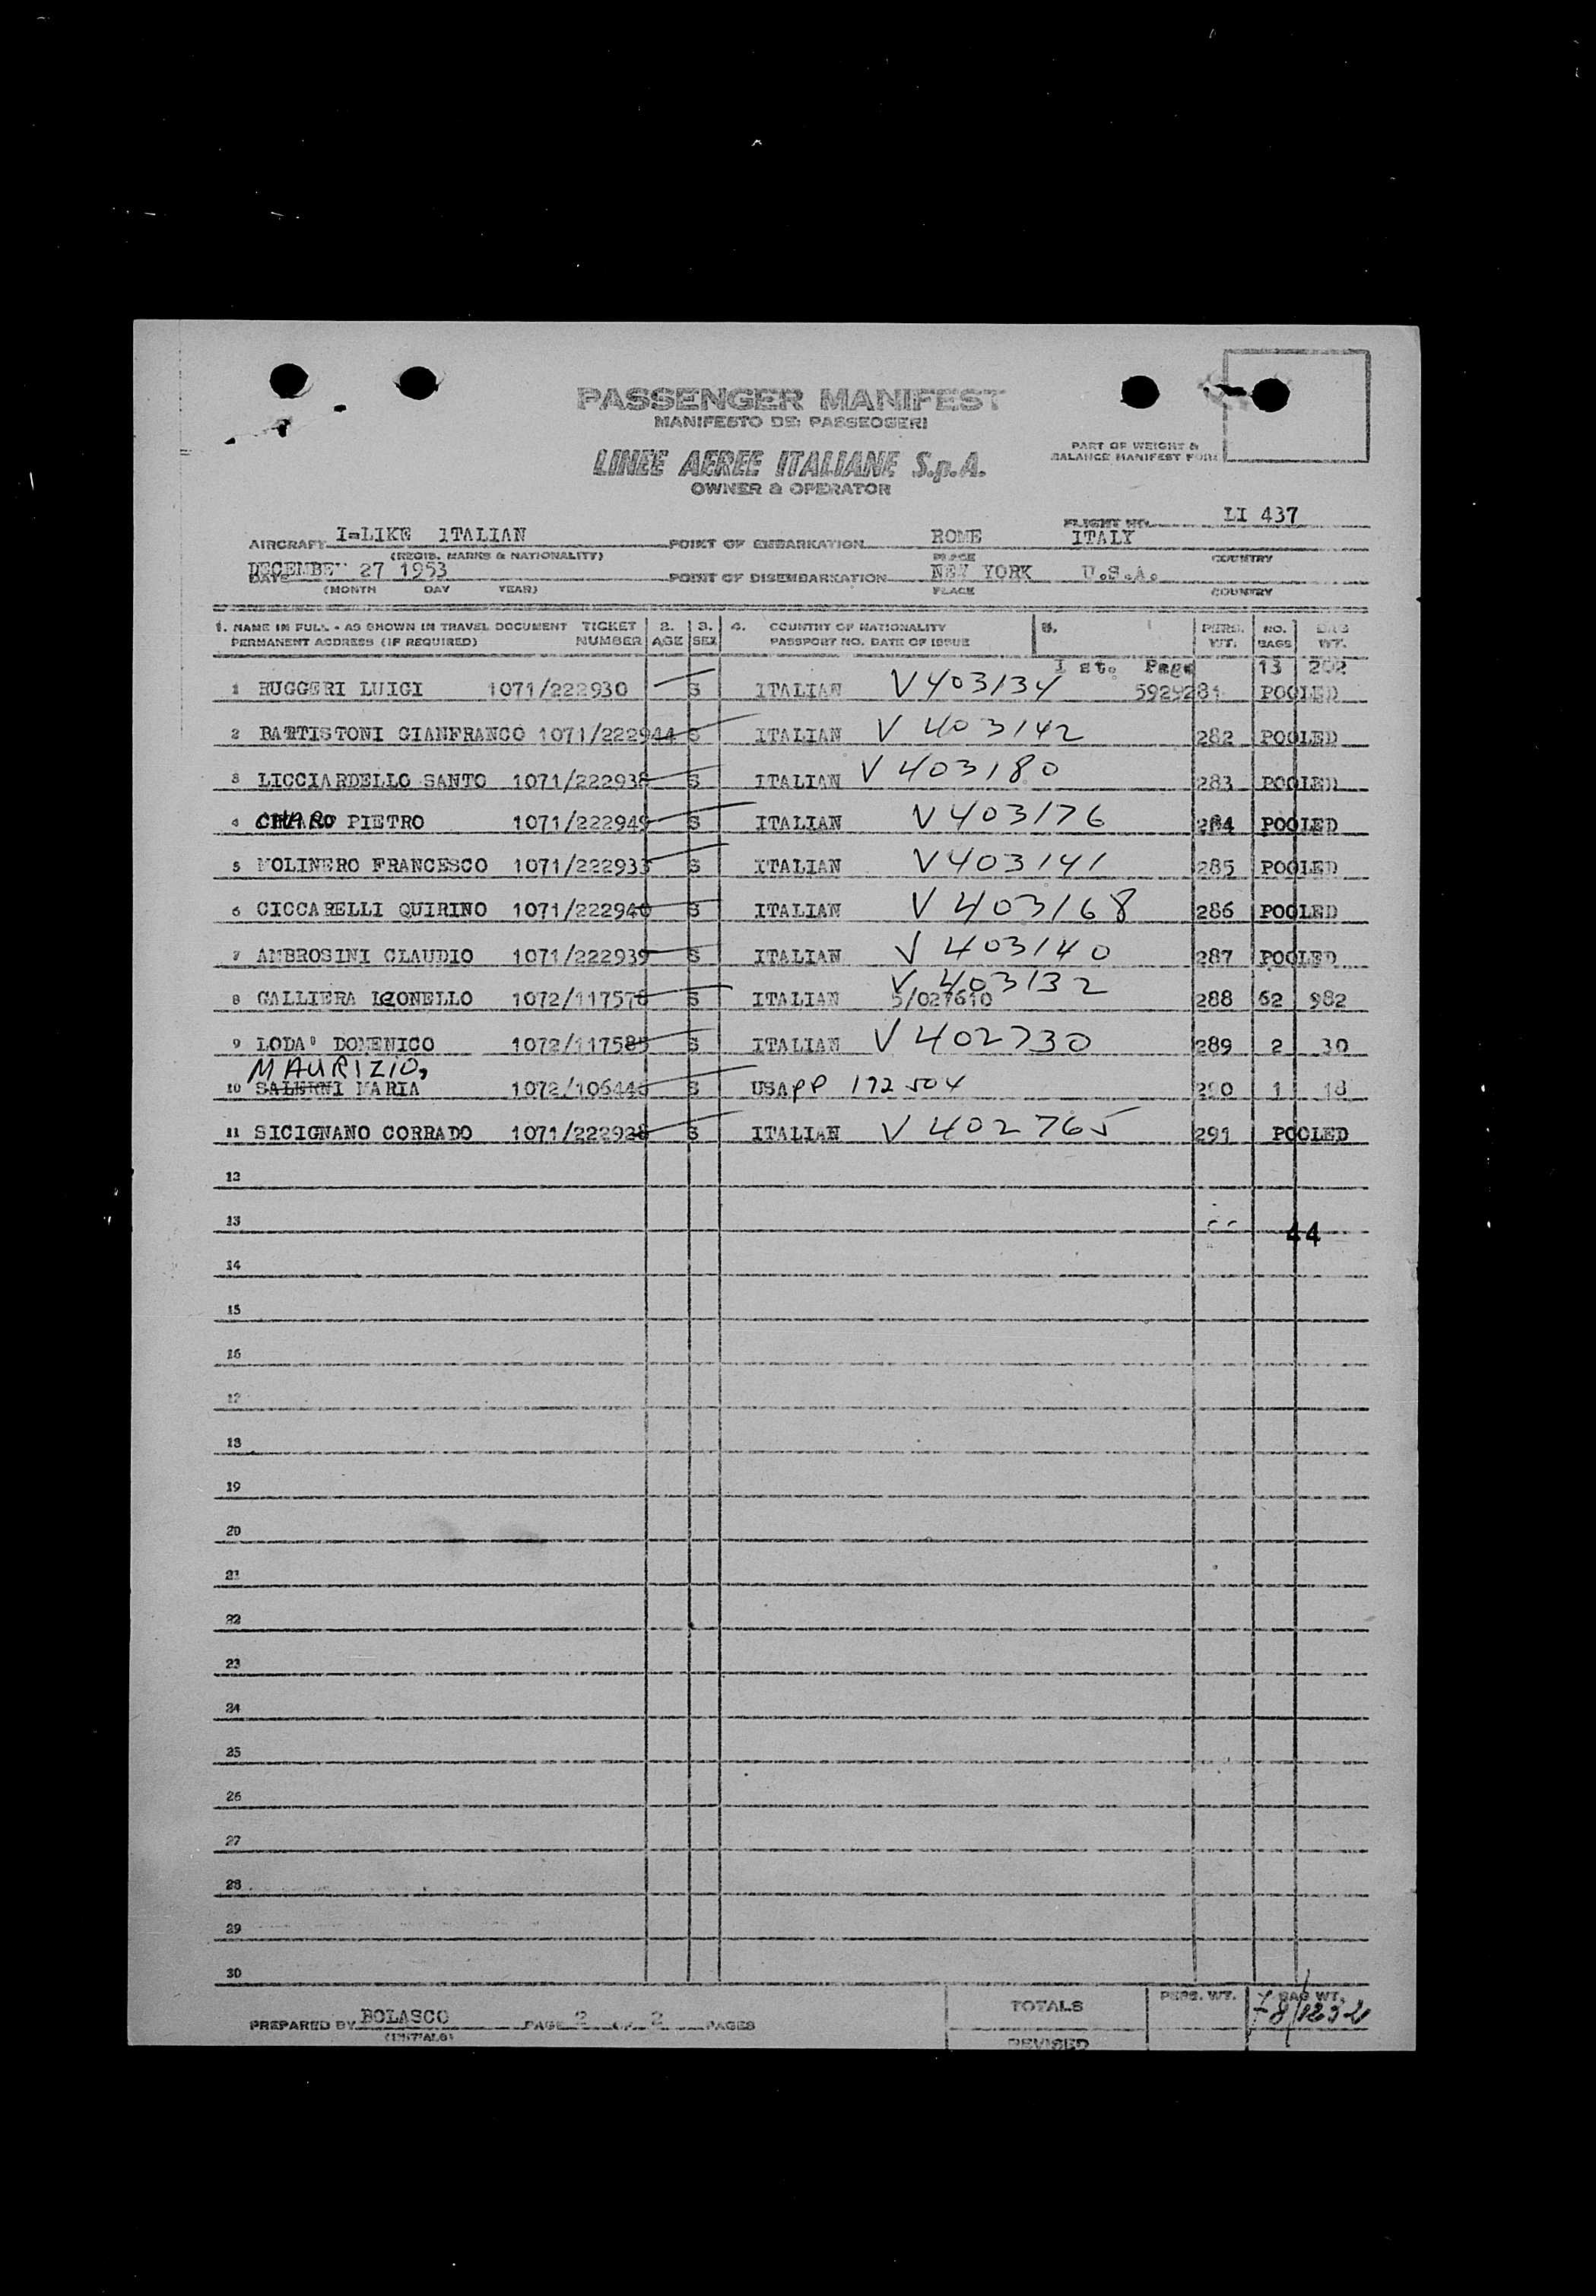 PASSENGER MANIFEST
MANIFESTO DEI PASSEGGERI
LINEE AEREE ITALIANE S.p.A.
OWNER & OPERATOR
PART OF WEIGHT &
BALANCE MANIFEST FORM
FLIGHT NO. LI 437
AIRCRAFT I-LIKE ITALIAN POINT OF EMBARKATION ROME ITALY
(REGIS. MARKS & NATIONALITY) PLACE COUNTRY
DATE DECEMBER 27 1953 POINT OF DISEMBARKATION NEW YORK U.S.A.
(MONTH DAY YEAR) PLACE COUNTRY
1. NAME IN FULL - AS SHOWN IN TRAVEL DOCUMENT TICKET 2. 3. 4. COUNTRY OF NATIONALITY 5. PERS. NO. BAG
PERMANENT ADDRESS (IF REQUIRED) NUMBER AGE SEX PASSPORT NO. DATE OF ISSUE WT. BAGS WT.
I st. Page 13 202
1 RUGGERI LUIGI 1071/222930 S ITALIAN V403134 5929281 POOLED
2 BATTISTONI GIANFRANCO 1071/222944 S ITALIAN V 403142 282 POOLED
3 LICCIARDELLO SANTO 1071/222938 S ITALIAN V 403180 283 POOLED
4 CHARO PIETRO 1071/222949 S ITALIAN V403176 284 POOLED
5 MOLINERO FRANCESCO 1071/222933 S ITALIAN V403141 285 POOLED
6 CICCARELLI QUIRINO 1071/222940 S ITALIAN V 403168 286 POOLED
7 AMBROSINI CLAUDIO 1071/222939 S ITALIAN V 403140 287 POOLED
V 403132
8 GALLIERA LEONELLO 1072/117578 S ITALIAN 5/027610 288 62 982
9 LODA' DOMENICO 1072/117585 S ITALIAN V 402730 289 2 30
MAURIZIO,
10 SALERNI MARIA 1072/106446 S USA PP 172504 290 1 18
11 SICIGNANO CORRADO 1071/222928 S ITALIAN V 402765 291 POOLED
12
13 44
14
15
16
17
18
19
20
21
22
23
24
25
26
27
28
29
30
PREPARED BY BOLASCO PAGE 2 OF 2 PAGES TOTALS PERS. WT. BAG WT. 78/1232
(INITIALS) REVISED